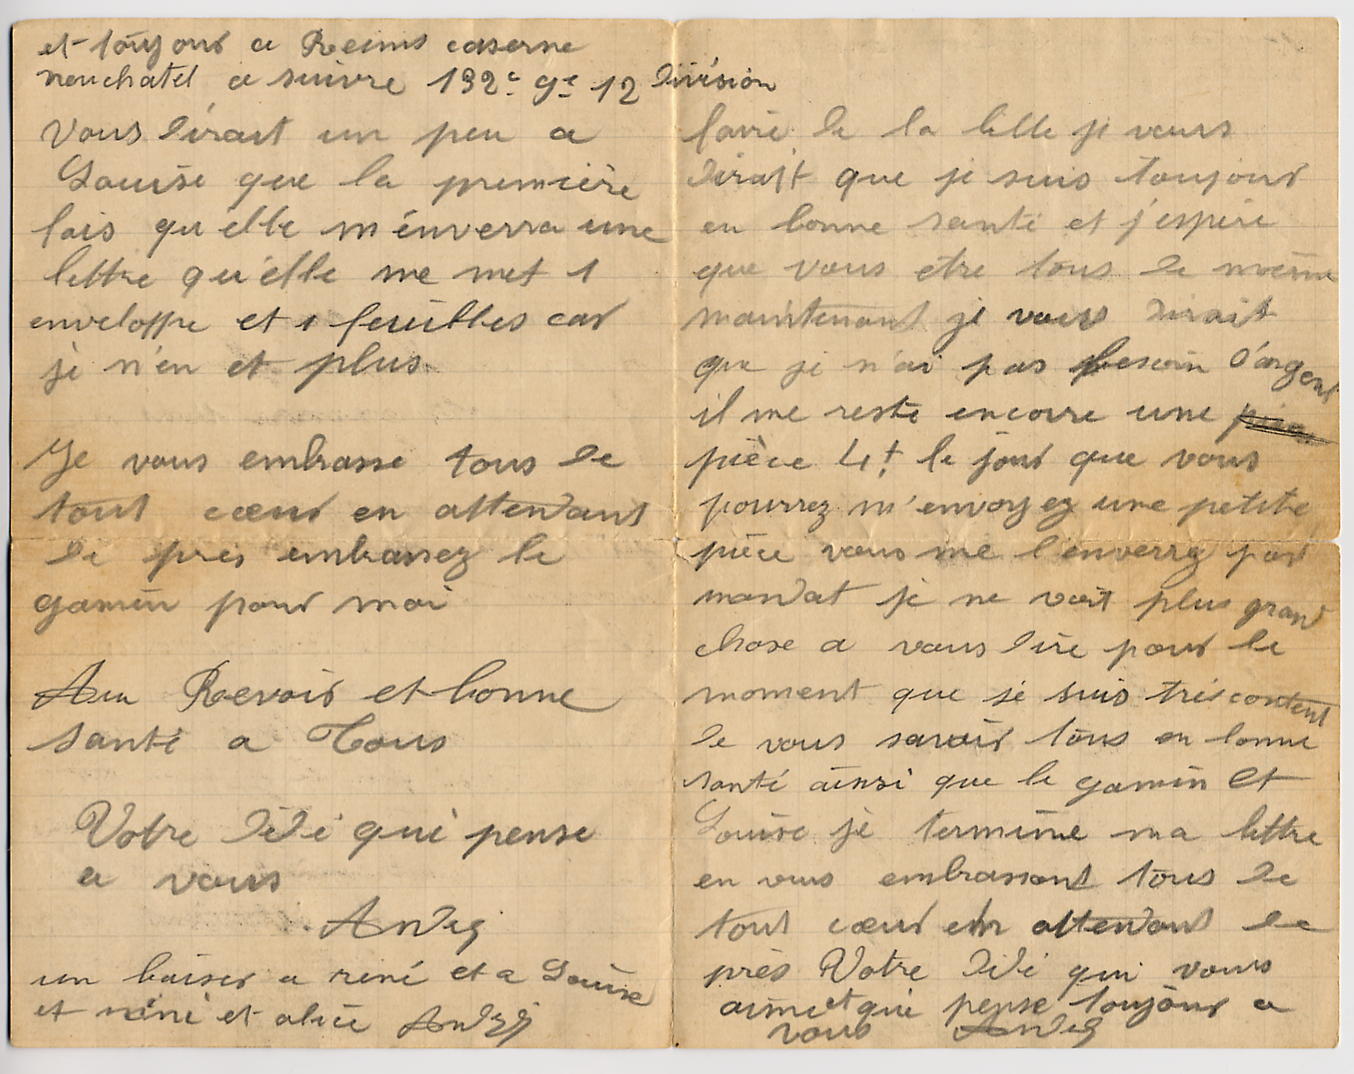 et toujour a Reims caserne
neuchatel a suivre 132e 9e 12 Division
Vous dirait un peu a
Louise que la première
fois qu'elle m'énverra une
lettre qu'elle me met 1
enveloppe et 1 feuilles car
je n'en et plus
Je vous embrasse tous de
tout cœur en attendant
de près embrassez le
gamin pour moi
Au Revoir et bonne
santé a Tous
Votre Dédé qui pense
a vous
André
un baiser a rené et a Louise
et néné et alice André
faire de la bille je vous
dirait que je suis toujour
en bonne santé et j'espère
que vous etre tous de même
maintenant je vous dirait
que je n'ai pas besoin d'argent
il me reste encorre une
pièce 4f le jour que vous
pourrez m'envoyez une petite
pièce vous me l'enverrez par
mandat je ne voit plus grand
chose a vous dire pour le
moment que je suis très content
de vous savoir tous en bonne
santé ainsi que le gamin et
Louise je termine ma lettre
en vous embrassant tous de
tout cœur en attendant de
près Votre Dédé qui vous
aime et qui pense toujour a
vous André